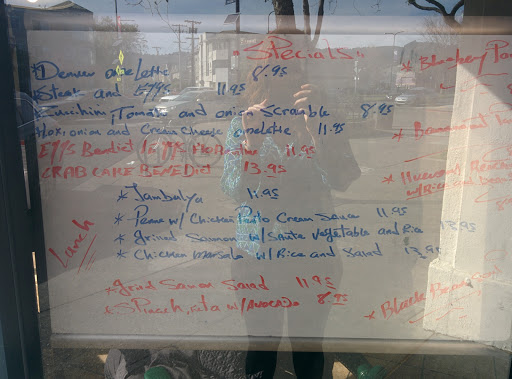 "Specials"
*Denver omelette 8.95
*Steak and Eggs 11.95
*Zucchini, Tomato and onion Scramble 8.95
*Lox, onion and Cream cheese omelette 11.95
Eggs Benedict 11.95
CRAB CAKE BENEDICT 13.95
Lunch
* Jambalya 11.95
* Penne w/ Chicken Pesto Cream Sauce 11.95
* grind Salmon w/ Saute vegetable and Rice 13.95
* Chicken marsala w/ Rice and Saland 13.95
* grind Samon Salad 11.95
* Spinach, feta w/ AVOCADO 8.95
* Blueberry
*
* Huevos
w/ Rice and beans
* Black Bean